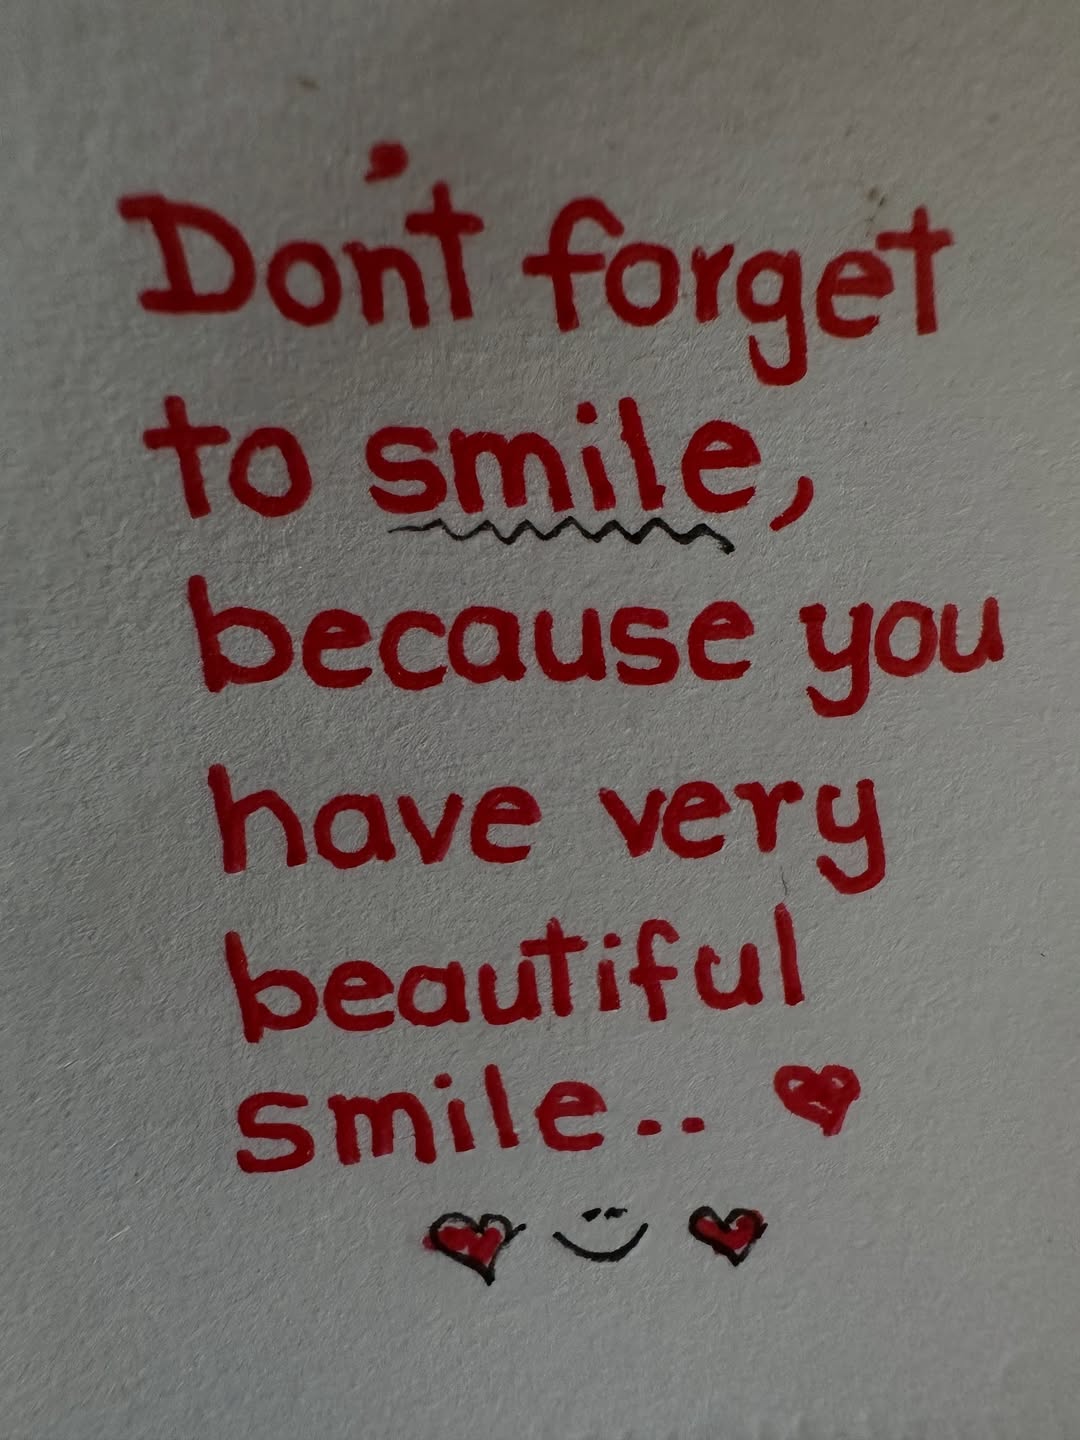 Don't forget
to smile,
because you
have very
beautiful
smile..